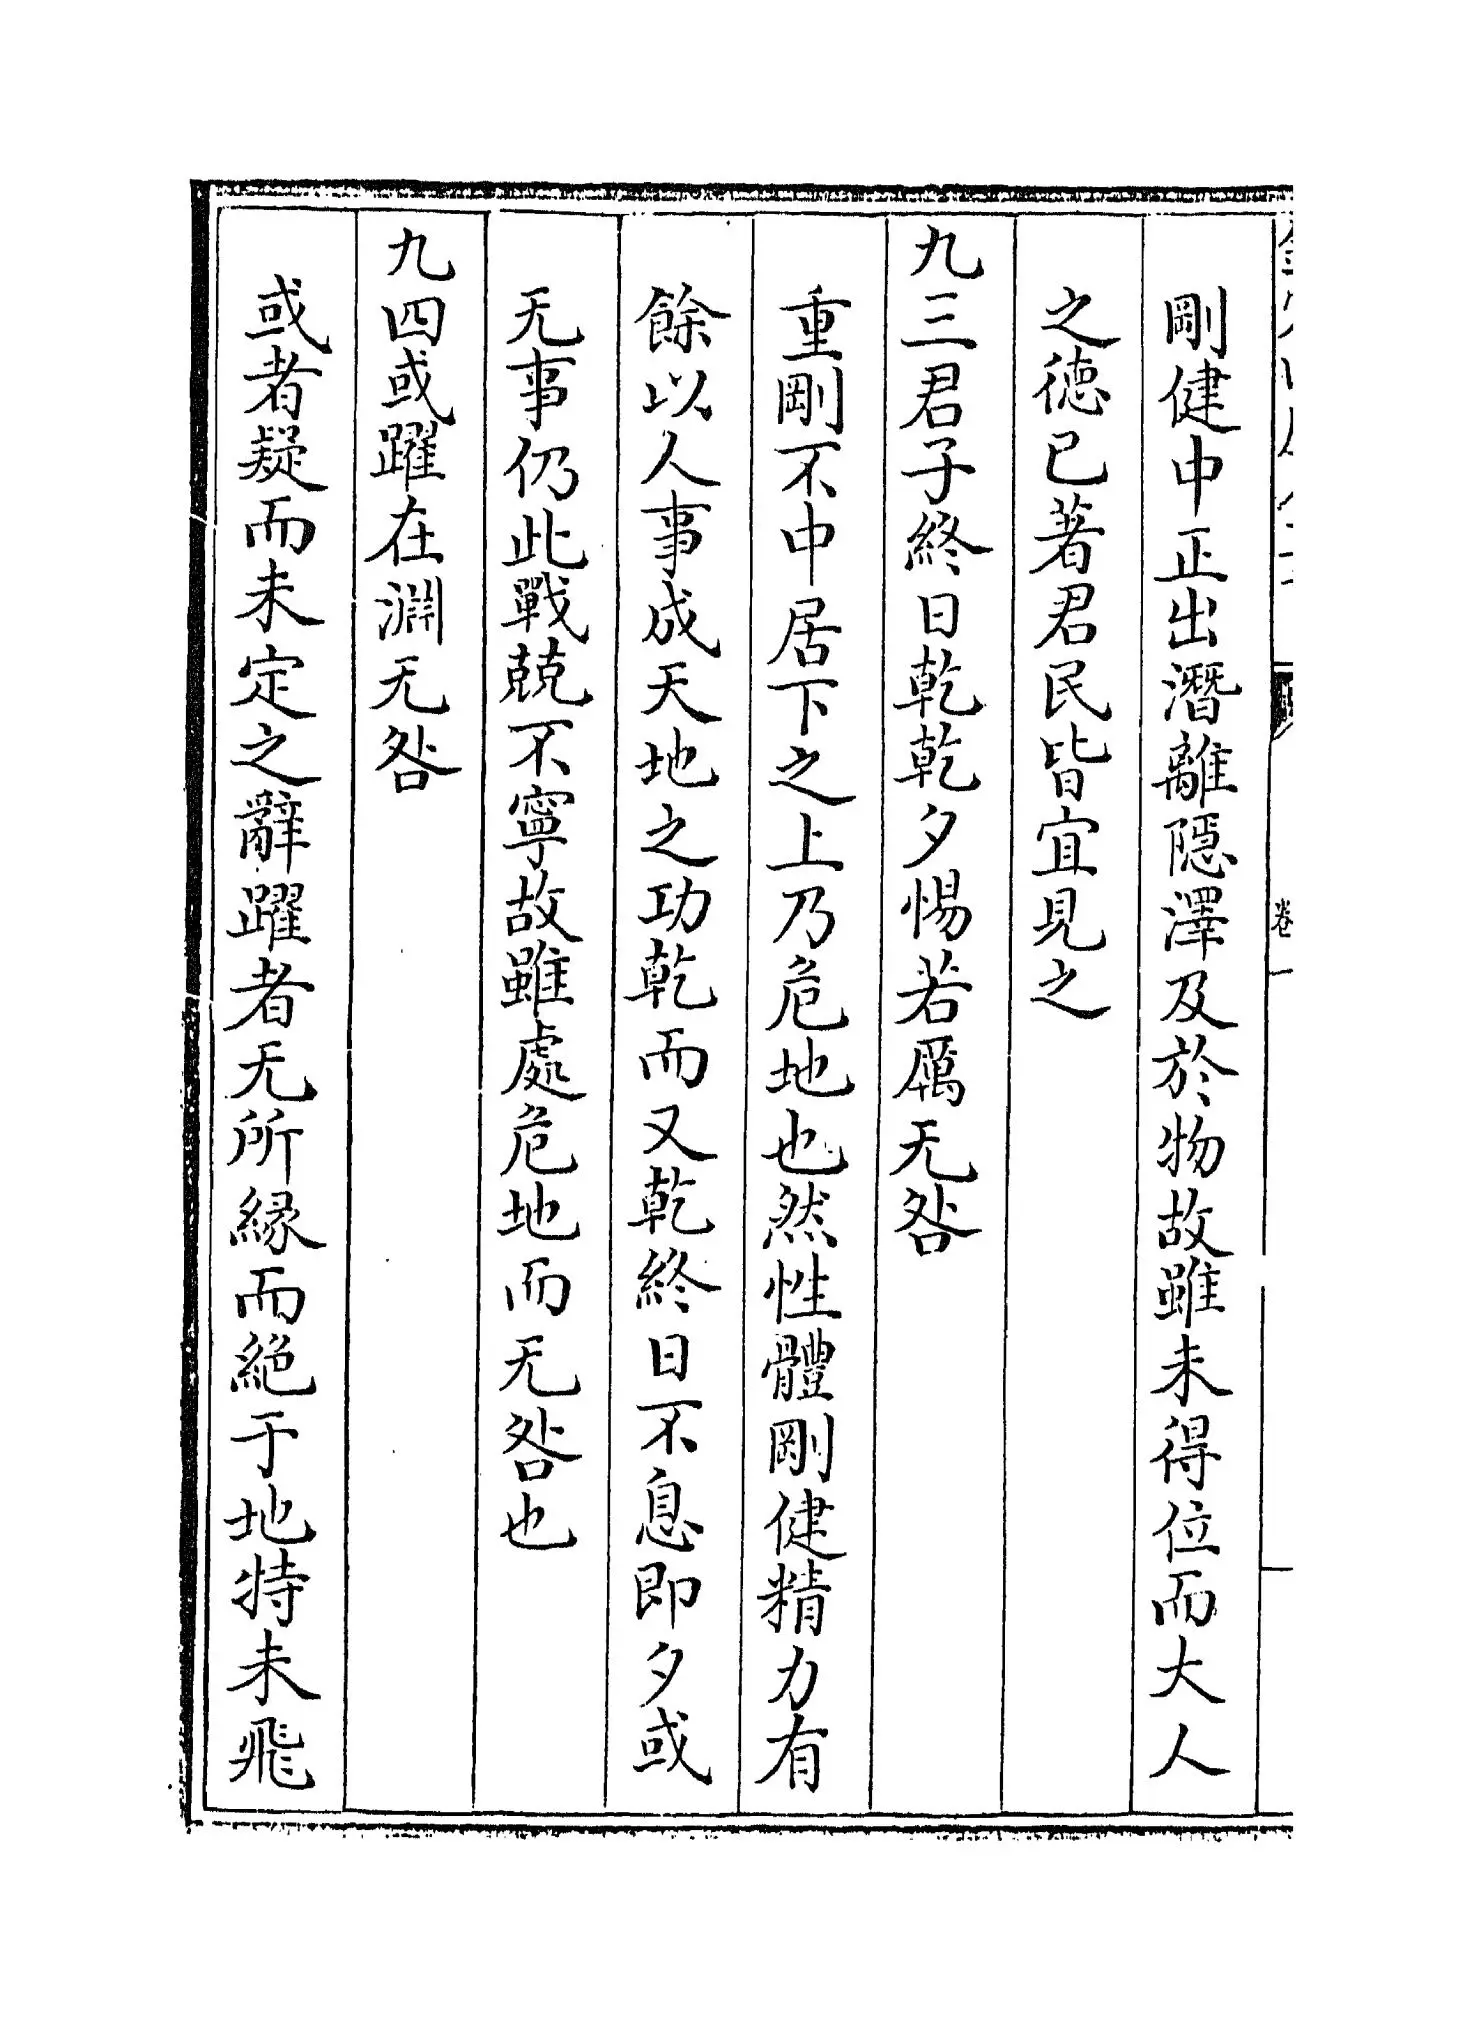 剛健中正出潛離隱澤及於物故雖未得位而大人
之徳已著君民皆宜見之
九三君子終日乾乾夕惕若厲无咎
重剛不中居下之上乃危地也然性體剛健精力有
餘以人事成天地之功乾而又乾終日不息即夕或
无事仍此戰兢不寧故雖處危地而无咎也
九四或躍在淵无咎
或者疑而未定之辭躍者无所縁而絶于地特未飛
卷一